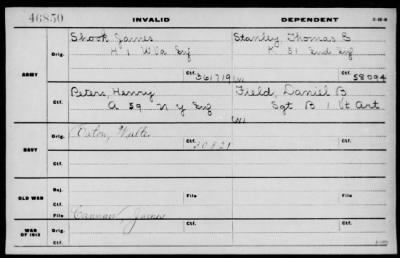 46850 INVALID DEPENDENT
Shook James Stanley Thomas E
Orig. H 1 W Va Inf K 31 Ind Inf
ARMY Ctf. 361719 Ctf. 58094
Peters, Henry Field, Daniel B
Ctf. A 59 N Y Inf Sgt B 1 Vt Art
Eaton, Walter
Orig. Ctf. 20821 Orig. Ctf.
NAVY
Ctf.
Rej. File File
OLD WAR
Ctf.
File Cannan, James
WAR OF 1812 Orig. Ctf. Orig. Ctf.